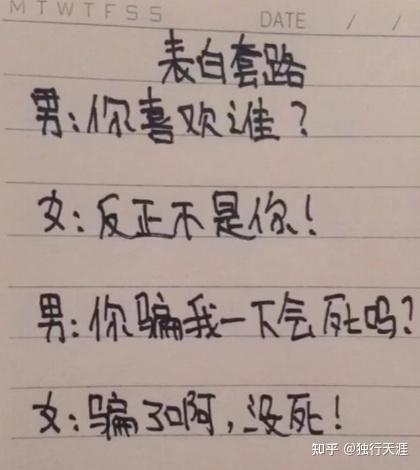 M T W T F S S DATE / /
表白套路
男:你喜欢谁?
女:反正不是你!
男:你骗我一下会死吗?
女:骗了啊,没死!
知乎 @独行天涯